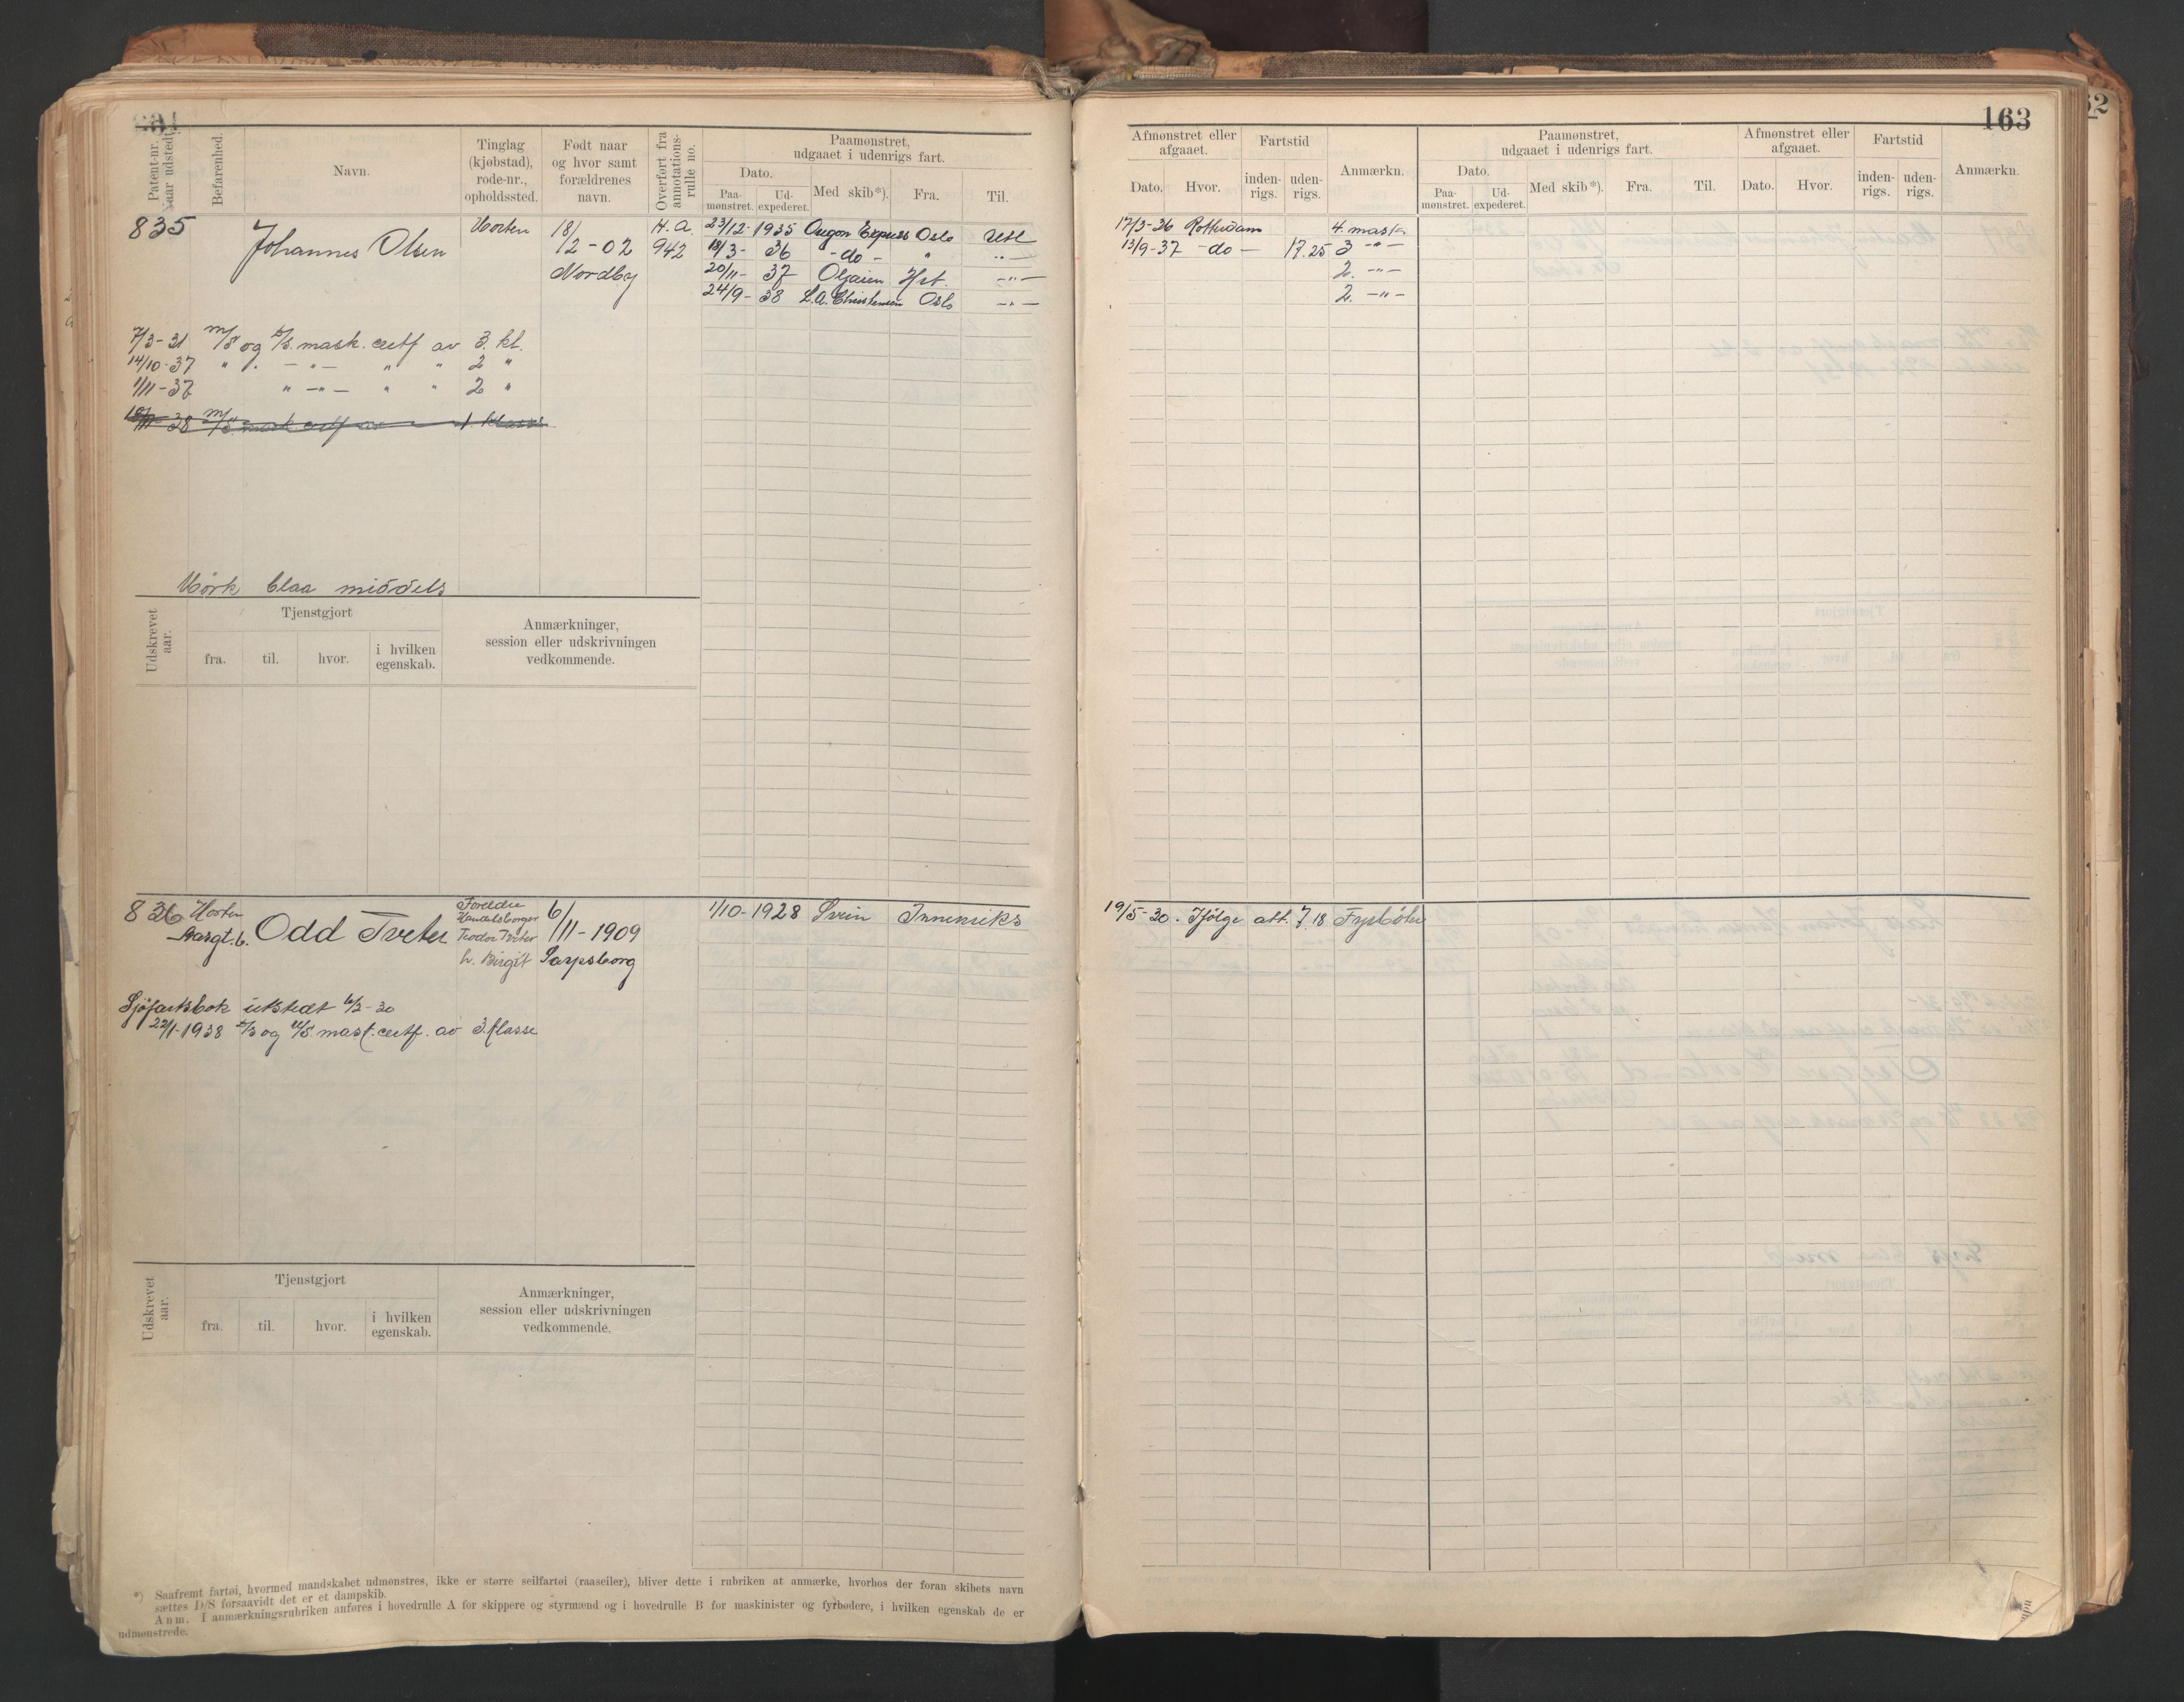 163
Patent-nr.
naar udstedt.
Befarenhed.
Navn.
Tinglag
(kjøbstad),
rode-nr.,
opholdssted.
Født naar
og hvor samt
forældrenes
navn.
Overført fra
annotations-
rulle no.
Paamønstret,
udgaaet i udenrigs fart.
Dato.
Paa-
mønstret.
Ud-
expederet.
Med skib*).
Fra.
Til.
835
Johannes Olsen
Horten
18/
12-02
Nordby
H.a.
942
23/12-1935 Oregon Express Oslo Utl
18/3- 36 -do- " "-
20/11- 37 Oljaren Hst. -"-
24/9- 38 L.A. Christensen Oslo -"-
7/3-31 m/s og d/s. mask. certf av 3. kl.
14/10-37 " " -"- " " 2 "
1/11-37 " -"- " " 2 "
38 m/s. mask. certf av 1 klasse
Mörk blaa middels
Udskrevet
aar.
Tjenstgjort
fra.
til.
hvor.
i hvilken
egenskab.
Anmærkninger,
session eller udskrivningen
vedkommende.
836 Horten
Aargt. b. Odd Tveter
Foreldre
Handelsborger
Teodor Tveter
h. Birgit
6/
11-1909
Sarpsborg
1/10-1928 Svein Innenriks
Sjöfartsbok utstedt 6/3-30
22/1-1938 d/s og m/s. mask. certf. av 3. klasse
Udskrevet
aar.
Tjenstgjort
fra.
til.
hvor.
i hvilken
egenskab.
Anmærkninger,
session eller udskrivningen
vedkommende.
*) Saafremt fartøi, hvormed mandskabet udmønstres, ikke er større seilfartøi (raaseiler), bliver dette i rubriken at anmærke, hvorhos der foran skibets navn
sættes D/S forsaavidt det er et dampskib.
Anm. I anmærkningsrubriken anføres i hovedrulle A for skippere og styrmænd og i hovedrulle B for maskinister og fyrbødere, i hvilken egenskab de er
udmønstrede.
Afmønstret eller
afgaaet.
Dato.
Hvor.
Fartstid
inden-
rigs.
uden-
rigs.
Anmærkn.
Paamønstret,
udgaaet i udenrigs fart.
Dato.
Paa-
mønstret.
Ud-
expederet.
Med skib*).
Fra.
Til.
Afmønstret eller
afgaaet.
Dato.
Hvor.
Fartstid
inden-
rigs.
uden-
rigs.
Anmærkn.
17/3-36 Rotterdam 4. mask
13/9-37 -do- 17.25 3 -"-
2. -"-
2. -"-
19/5-30. Ifølge att. 7.18 Fyrböter